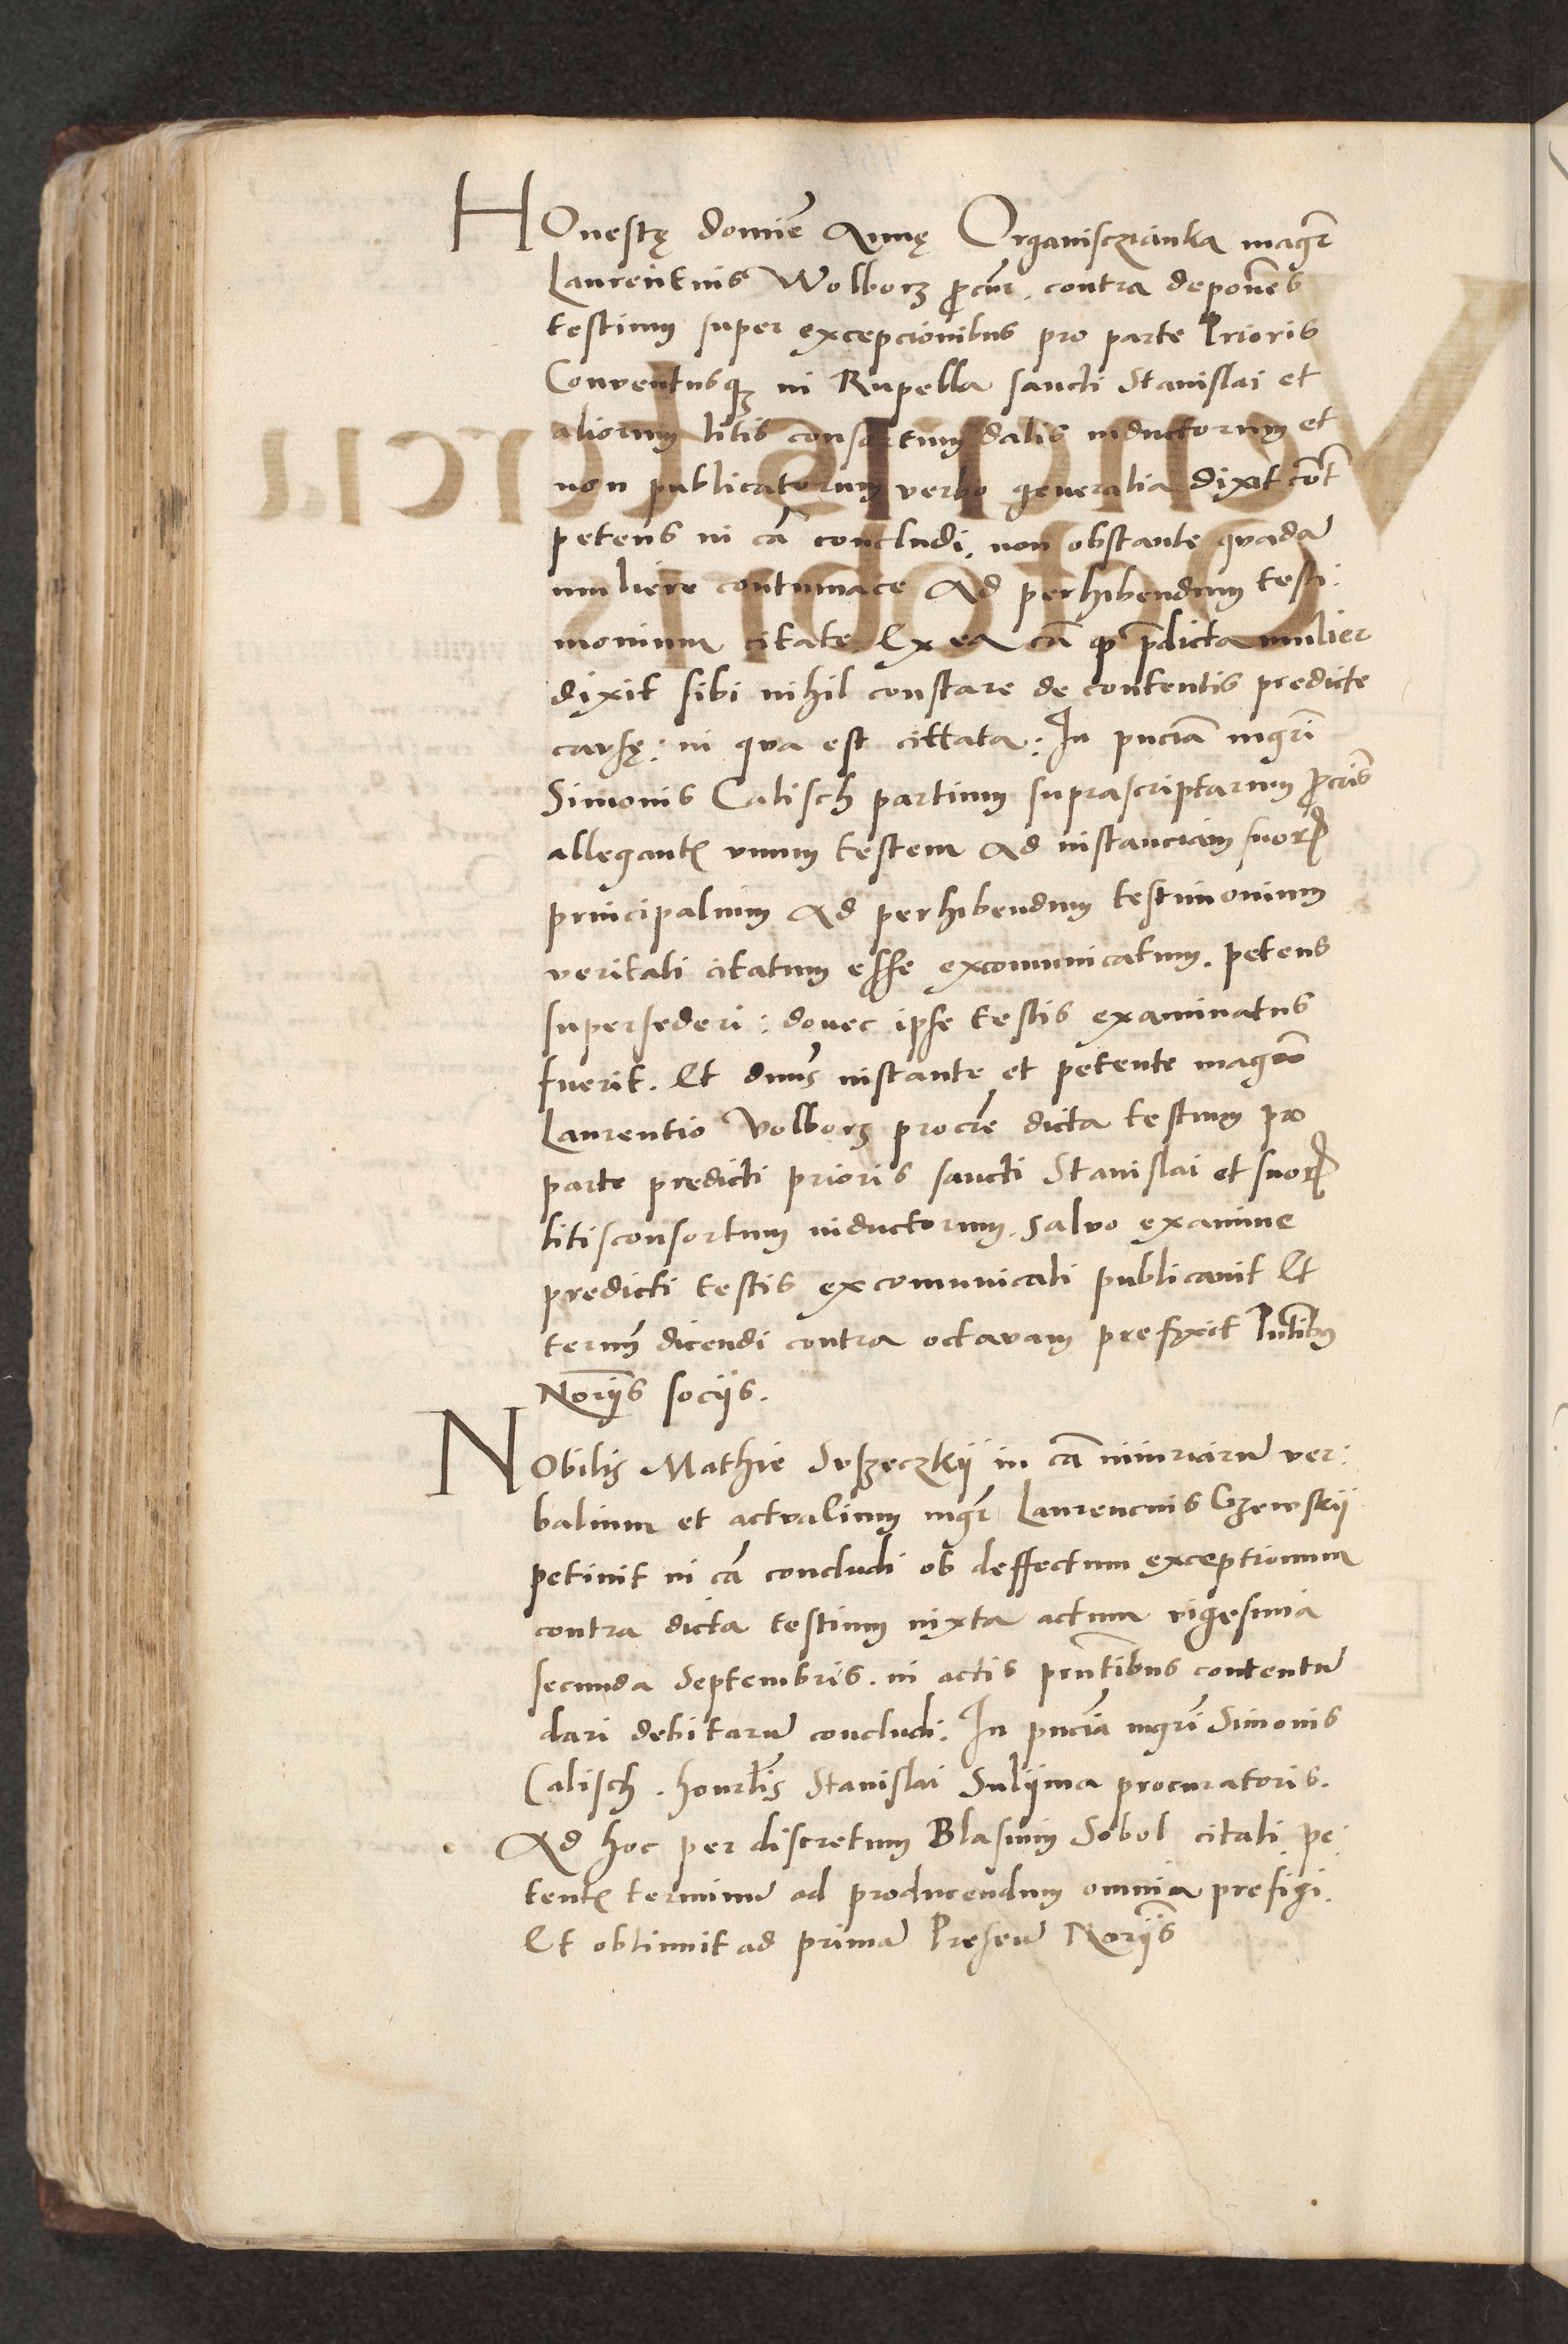 HOnestę domiē Annę Organisczanka magr̄
Laurentius Wolborz ꝓcur̄. contra deponēs
testium super excepcionibus pro parte Prioris
Conventusqꝫ in Rupella sancti Stanislai et
aliorum litis consortum datis inductorum et
non publicatorum verbo generalia dixit cōt
petens in cā concludi. non obstante quadā
muliere contumace Ad perhibendum testi:
monium citate. Ex ea cā ꝙ p̄dicta mulier
dixit sibi nihil constare de contentis predicte
causę: in qua est cittata: In pn̄ciā mgr̄i
Simonis Calisch partium suprascriptarum ꝓcrīs
allegantꝭ unum testem Ad instanciam suorꝝ
principalium Ad perhibendum testimonium
veritati citatum esse excomunicatum. petens
supersederi: donec ipse testis examinatus
fuerit. Et dnūs instante et petente magrō
Laurentio Volborz procrē dicta testium pro
parte predicti prioris sancti Stanislai et suorꝝ
litisconsortum inductorum. salvo examine
predicti testis excomunicati publicavit Et
termū dicendi contra octavam prefyxit Pn̄tibus
Norijs̄ socijs.
NObilis Mathie Suszeczkij in cā iniuriarū ver:
balium et actualium mgr̄ Laurencius Gzewskij
petivit in cā concludi ob deffectum exceptionum
contra dicta testium iuxta actum vigesima
secunda Septembris. in actis pn̄tibus contentū
dari debitarū concludi: In pn̄ciā mgr̄i Simonis
Calisch. honrlis̄ Stanislai Sulijma procuratoris.
Ad hoc per discretum Blasium Sobol citati. pe:
tentꝭ terminū ad producendum omnia prefigi.
Et obtinuit ad primā Presen̄ Norijs̄